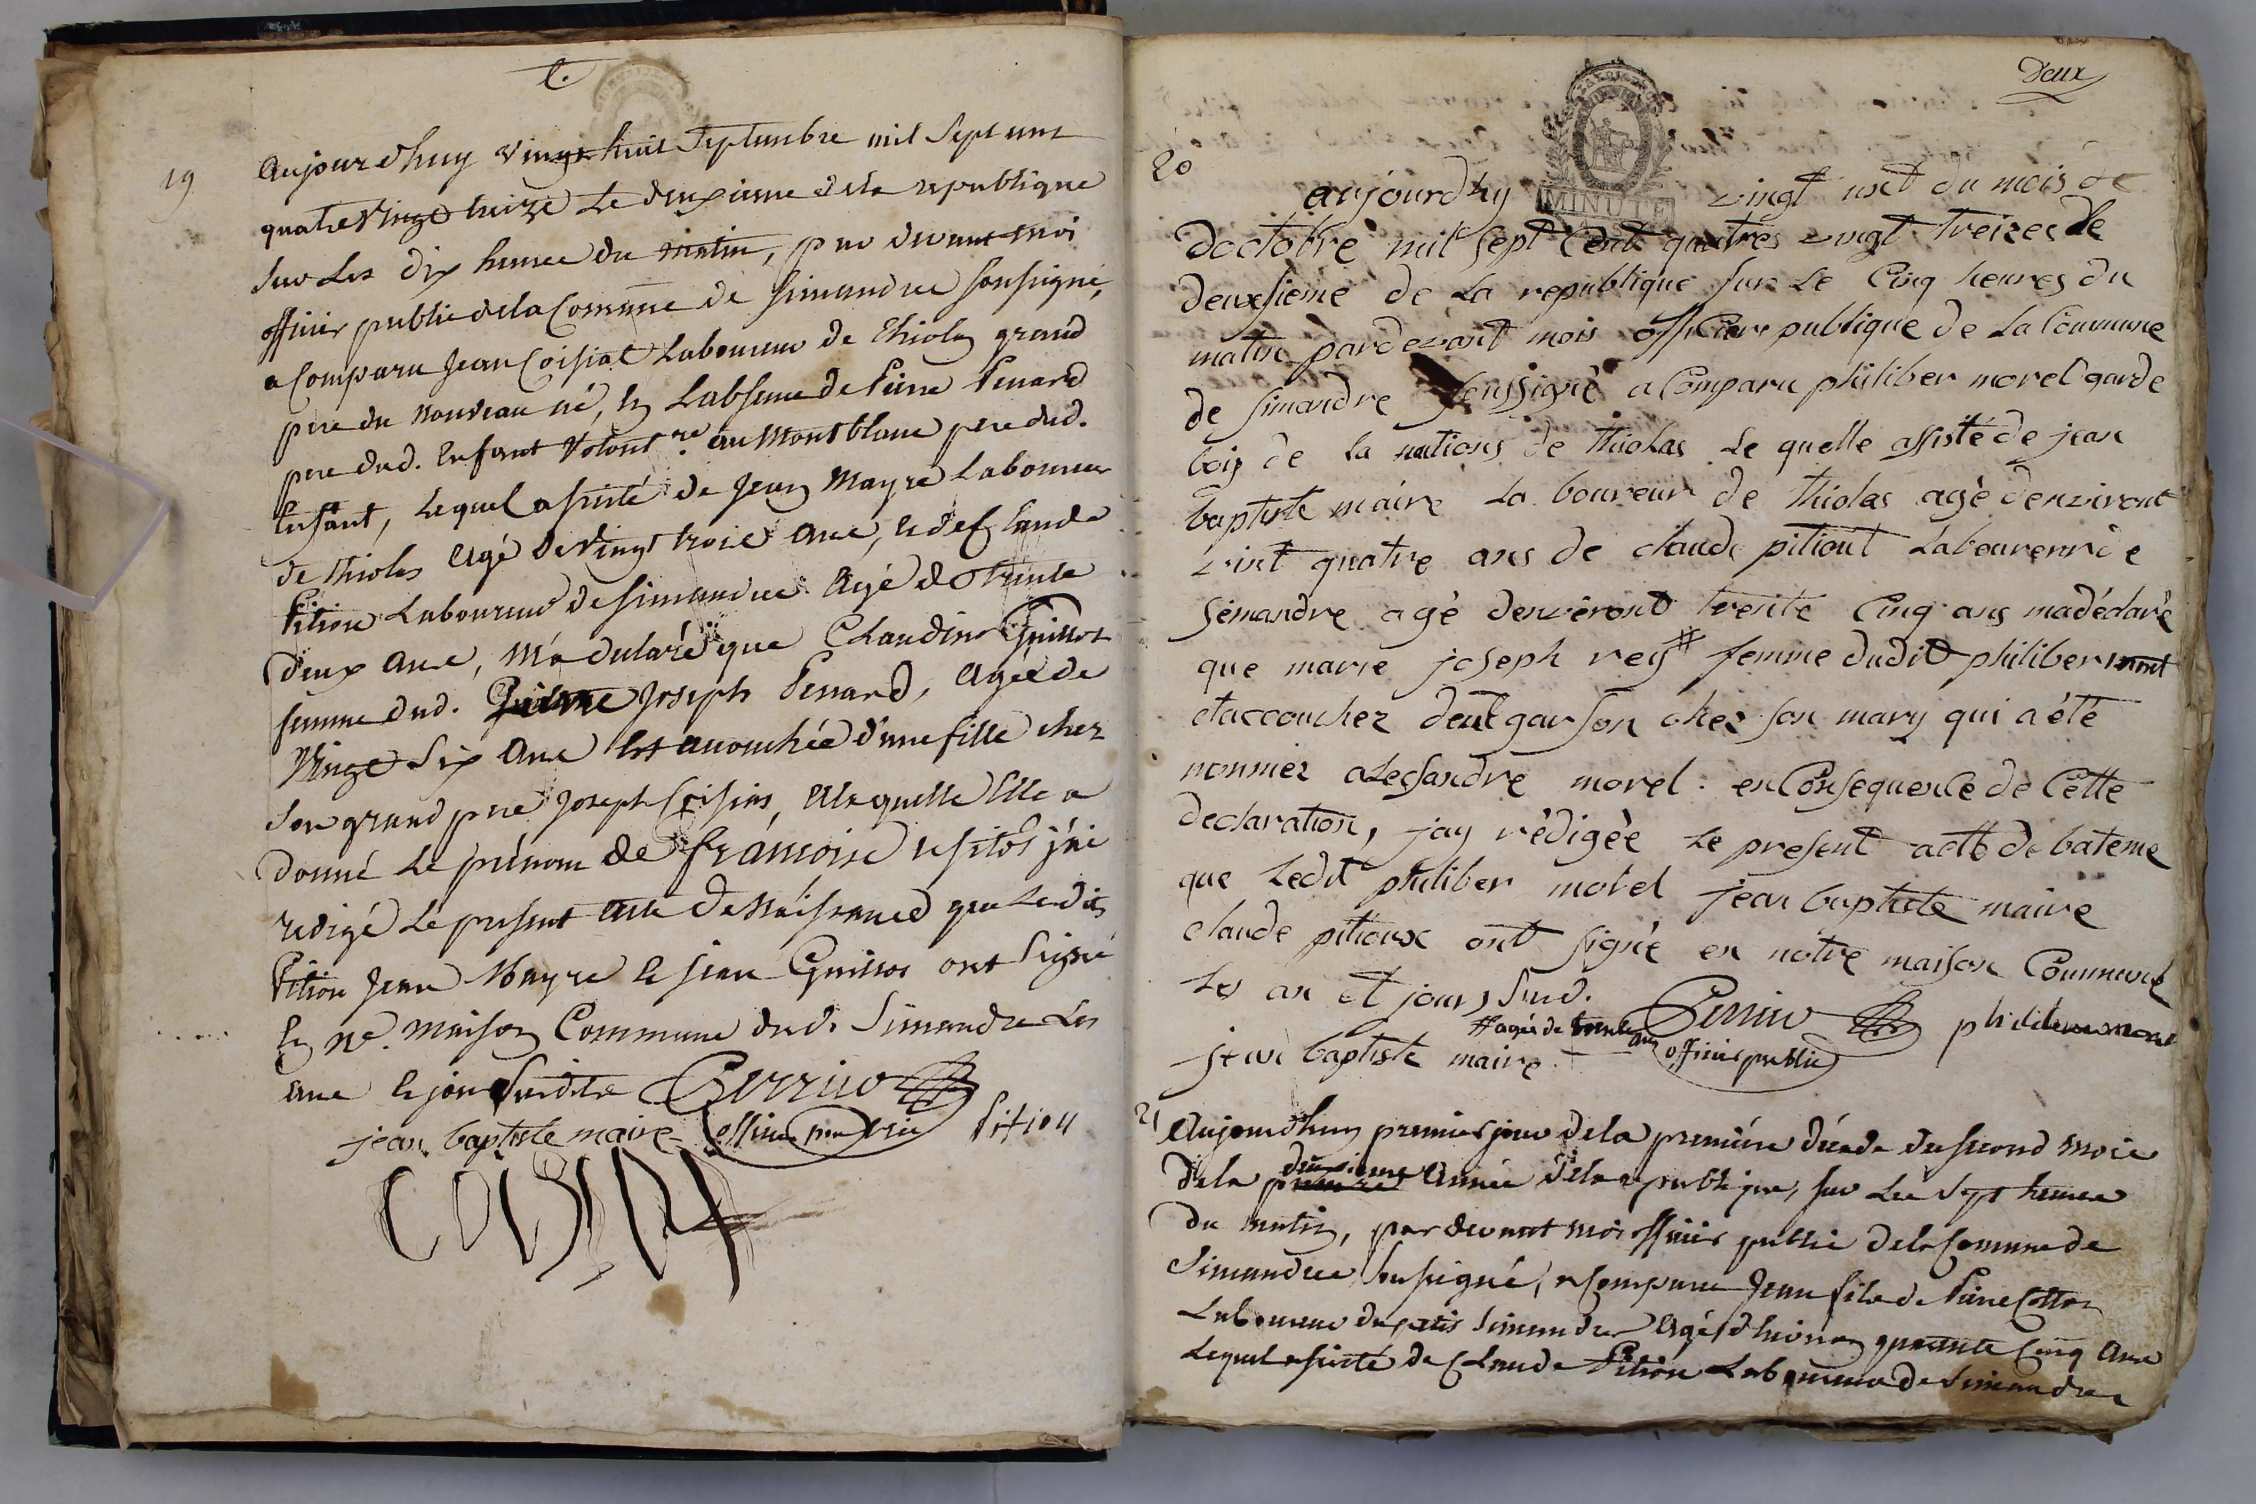 19
aujourdhuy vingt huit Septembre mil Sept cent
quatre Vingt treize Le deuxieme dela republique
sur Les dix heures du matin, par devant moi
officier public dela Commune de Simandre soussigné,
a Comparu Jean Coisiat Laboureur de thiolas grand
pere du nouveau né, en Labsence de Pierre Penard
pere dud. Enfant Volontre. au Montblanc pere dud.
Enfant, Lequel assisté de Jean Mayre Laboureur
de thiolas agé de Vingt trois ans, et de Claude
Pition Laboureur de Simandre agé de trente
deux ans, M'a declaré que Claudine
femme dud. Joseph Penard, agée de
Vingt Six ans Est accouchée d'une fille chez
Son grand pere Joseph, a laquelle Elle a
donné Le prénom de françoise j'ai
redigé Le present acte de Naissance que Le dit
Pition Jean Mayre et Jean ont Signé
En ne. Maison Commune dud. Simandre Les
ans et jour Susdits Perrier
jean baptiste maire officier public Pition
COISIAT
Deux
MINUTE
20
aujourdhy vingt uit du mois de
doctobre mil sept Cent quatres vingt treizes de
deuxsieme de La republique sur Le Cinq heures du
matin pardevant mois officier publique de La Commune
de simandre soussigné a Comparu philiber morel garde
bois de la nations de thiolas Le quelle assisté de jean
baptiste maire La boureur de thiolas agé denviront
vint quatre ans de claude pitiout Laboureur de
Semandre agé denveront trente Cinq ans madéclaré
que marie joseph rey # femme dudit philiber
etaccouchez deut garson chez son mary qui a été
nommez alecsandre morel. en Consequence de Cette
declaration, jay rédigée Le present acte de bateme
que Ledit philiber morel jean baptiste maire
claude pitioux ont signée en notre maison Commune
Les an et jours sud.
# agée de trente ans Perrier philibere morel
jean baptiste maire officier public
21
Aujourdhuy premier jour dela première décade du second mois
dela premiere deuxieme année dela republique, sur Les Sept heures
du matin, par devant moi officier public dela Commune de
Simandre Soussigné, a Comparu Jean fils de Pierre Cotton
Laboureur du petit Simandre agé d'environ quarante Cinq ans
Lequel assisté de Claude Pition Laboureur de Simandre